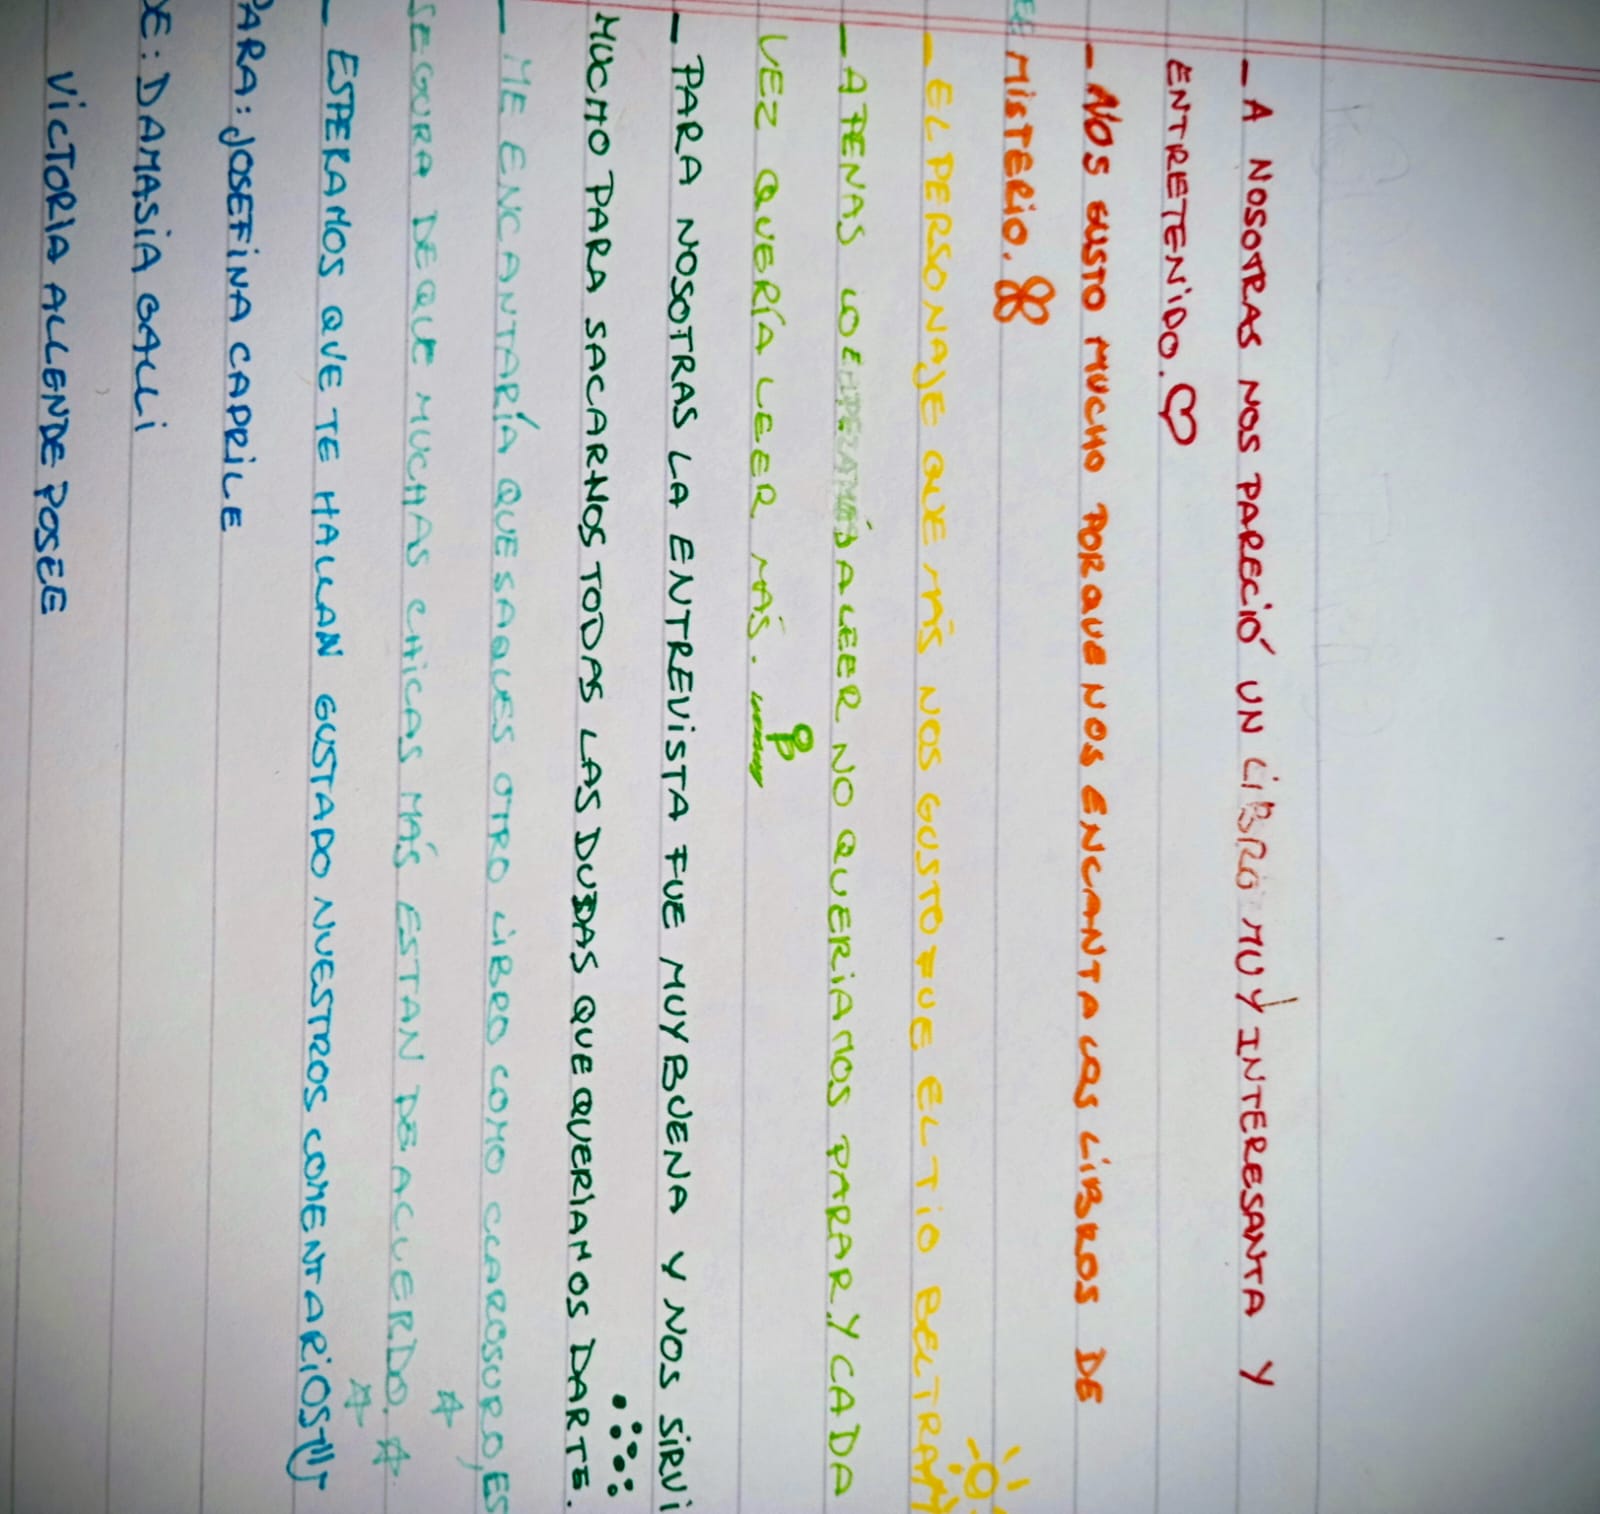 - A NOSOTRAS NOS PARECIÓ UN LIBRO MUY INTERESANTA Y
ENTRETENIDO.
- NOS GUSTO MUCHO PORQUE NOS ENCANTA LOS LIBROS DE
MISTERIO.
- EL PERSONAJE QUE MÁS NOS GUSTO FUE EL TIO BELTRAN
- APENAS LO EMPEZAMOS A LEER NO QUERIAMOS PARAR Y CADA
VEZ QUERÍA LEER MÁS.
- PARA NOSOTRAS LA ENTREVISTA FUE MUY BUENA Y NOS SIRVI
MUCHO PARA SACARNOS TODAS LAS DUDAS QUE QUERIAMOS DARTE.
- ME ENCANTARÍA QUE SAQUES OTRO LIBRO COMO CLAROSCURO, ES
SEGURA DE QUE MUCHAS CHICAS MÁS ESTAN DE ACUERDO.
- ESPERAMOS QUE TE HALLAN GUSTADO NUESTROS COMENTARIOS
PARA: JOSEFINA CAPRILE
DE: DAMASIA GALLI
VICTORIA ALLENDE POSEE